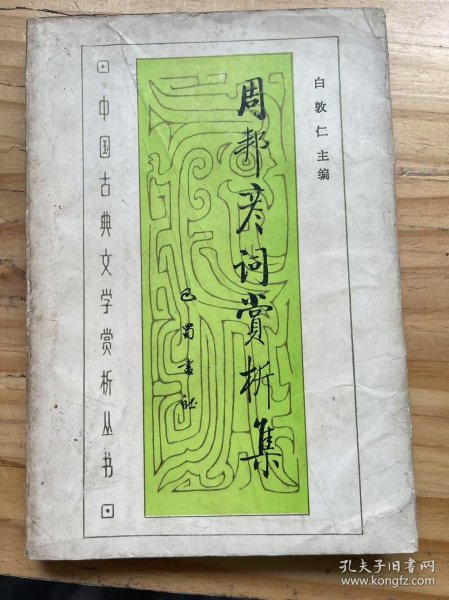 白敦仁主编
周邦彦词赏析集
巴蜀书社
中国古典文学赏析丛书
孔夫子旧书网
www.kongfz.com